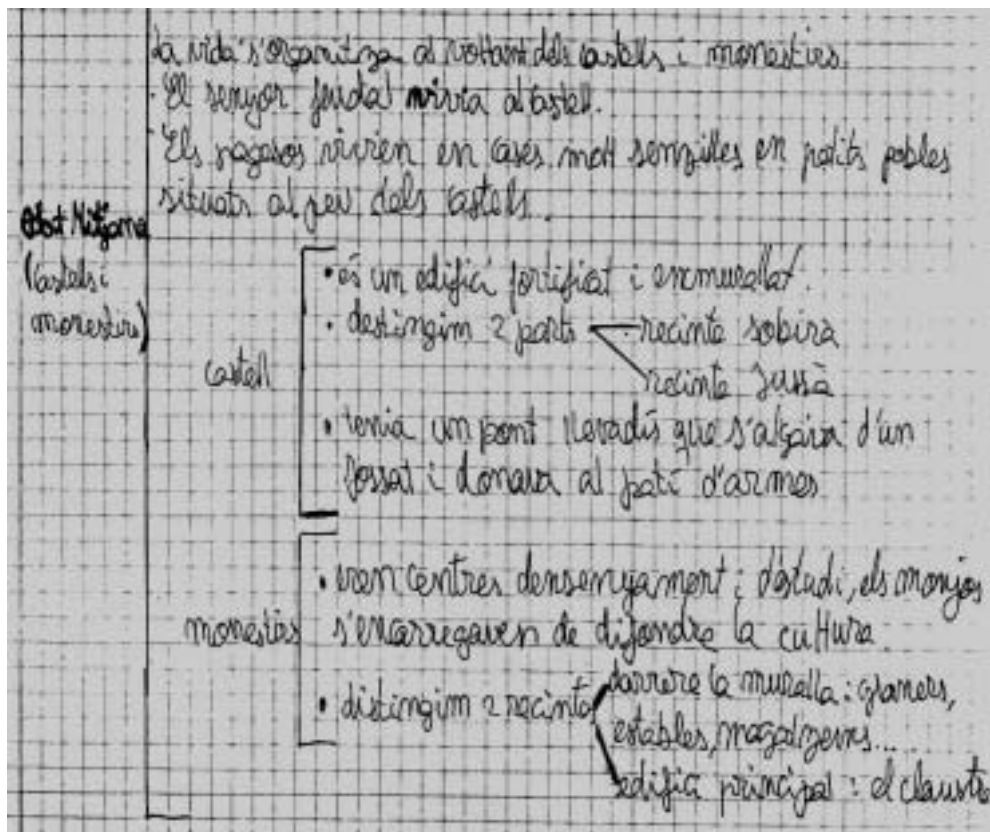 La vida s'organitza al voltant dels castells i monestirs.
· El senyor feudal vivia al castell.
· Els pagesos vivien en cases molt senzilles en petits pobles
situats al peu dels castells.
Edat Mitjana
(castells i
monestirs)
castell
• és un edifici fortificat i enmurallat.
• destingim 2 parts
recinte sobirà
recinte Jussà
• tenia un pont llevadís que s'alçava d'un
fossat i donava al pati d'armes
monestirs
• eren centres densenyament i d'estudi, els monjos
s'encarregaven de difondre la cultura.
• distingim 2 recintes
darrere la muralla: graners,
estables, magatzems...
edifici principal: el claustre